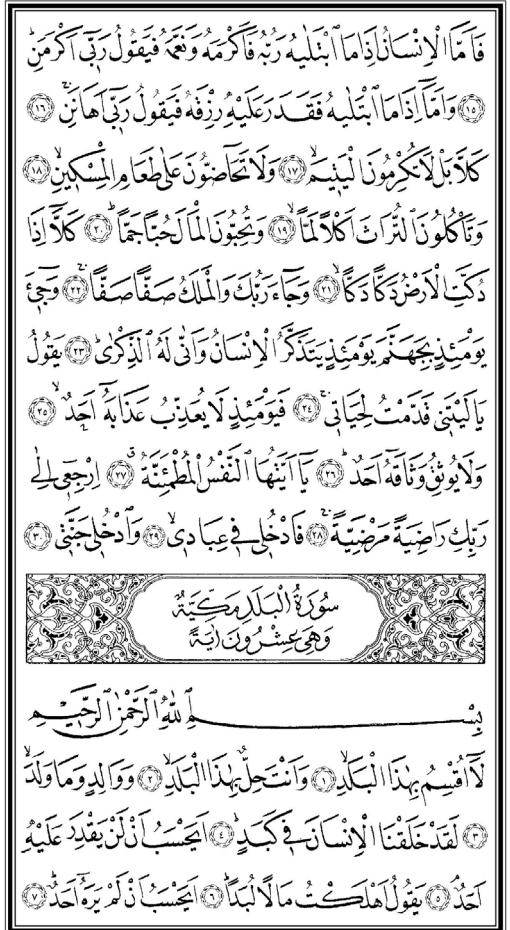 فَاَمَّا الْاِنْسَانُ اِذَا مَا ابْتَلٰيهُ رَبُّهُ فَاَكْرَمَهُ وَنَعَّمَهُ فَيَقُولُ رَبّٖٓى اَكْرَمَنِؕ
﴿١٥﴾ وَاَمَّٓا اِذَا مَا ابْتَلٰيهُ فَقَدَرَ عَلَيْهِ رِزْقَهُ فَيَقُولُ رَبّٖٓى اَهَانَنِۚ ﴿١٦﴾
كَلَّا بَلْ لَا تُكْرِمُونَ الْيَتٖيمَۙ ﴿١٧﴾ وَلَا تَحَٓاضُّونَ عَلٰى طَعَامِ الْمِسْكٖينِۙ ﴿١٨﴾
وَتَاْكُلُونَ التُّرَاثَ اَكْلًا لَمًّاۙ ﴿١٩﴾ وَتُحِبُّونَ الْمَالَ حُبًّا جَمًّاؕ ﴿٢٠﴾ كَلَّٓا اِذَا
دُكَّتِ الْاَرْضُ دَكًّا دَكًّاۙ ﴿٢١﴾ وَجَٓاءَ رَبُّكَ وَالْمَلَكُ صَفًّا صَفًّاۚ ﴿٢٢﴾ وَجٖٓىءَ
يَوْمَئِذٍ بِجَهَنَّمَ يَوْمَئِذٍ يَتَذَكَّرُ الْاِنْسَانُ وَاَنّٰى لَهُ الذِّكْرٰىؕ ﴿٢٣﴾ يَقُولُ
يَا لَيْتَنٖى قَدَّمْتُ لِحَيَاتٖىۚ ﴿٢٤﴾ فَيَوْمَئِذٍ لَا يُعَذِّبُ عَذَابَهُٓ اَحَدٌۙ ﴿٢٥﴾
وَلَا يُوثِقُ وَثَاقَهُٓ اَحَدٌؕ ﴿٢٦﴾ يَٓا اَيَّتُهَا النَّفْسُ الْمُطْمَئِنَّةُۗ ﴿٢٧﴾ اِرْجِعٖٓى اِلٰى
رَبِّكِ رَاضِيَةً مَرْضِيَّةًۚ ﴿٢٨﴾ فَادْخُلٖى فٖى عِبَادٖىۙ ﴿٢٩﴾ وَادْخُلٖى جَنَّتٖى ﴿٣٠﴾
سُورَةُ الْبَلَدِ مَكِّيَّةٌ
وَهِىَ عِشْرُونَ اٰيَةً
بِسْمِ اللّٰهِ الرَّحْمٰنِ الرَّحٖيمِ
لَٓا اُقْسِمُ بِهٰذَا الْبَلَدِۙ ﴿١﴾ وَاَنْتَ حِلٌّ بِهٰذَا الْبَلَدِۙ ﴿٢﴾ وَوَالِدٍ وَمَا وَلَدَۙ
﴿٣﴾ لَقَدْ خَلَقْنَا الْاِنْسَانَ فٖى كَبَدٍؕ ﴿٤﴾ اَيَحْسَبُ اَنْ لَنْ يَقْدِرَ عَلَيْهِ
اَحَدٌۘ ﴿٥﴾ يَقُولُ اَهْلَكْتُ مَالًا لُبَدًاؕ ﴿٦﴾ اَيَحْسَبُ اَنْ لَمْ يَرَهُٓ اَحَدٌؕ ﴿٧﴾